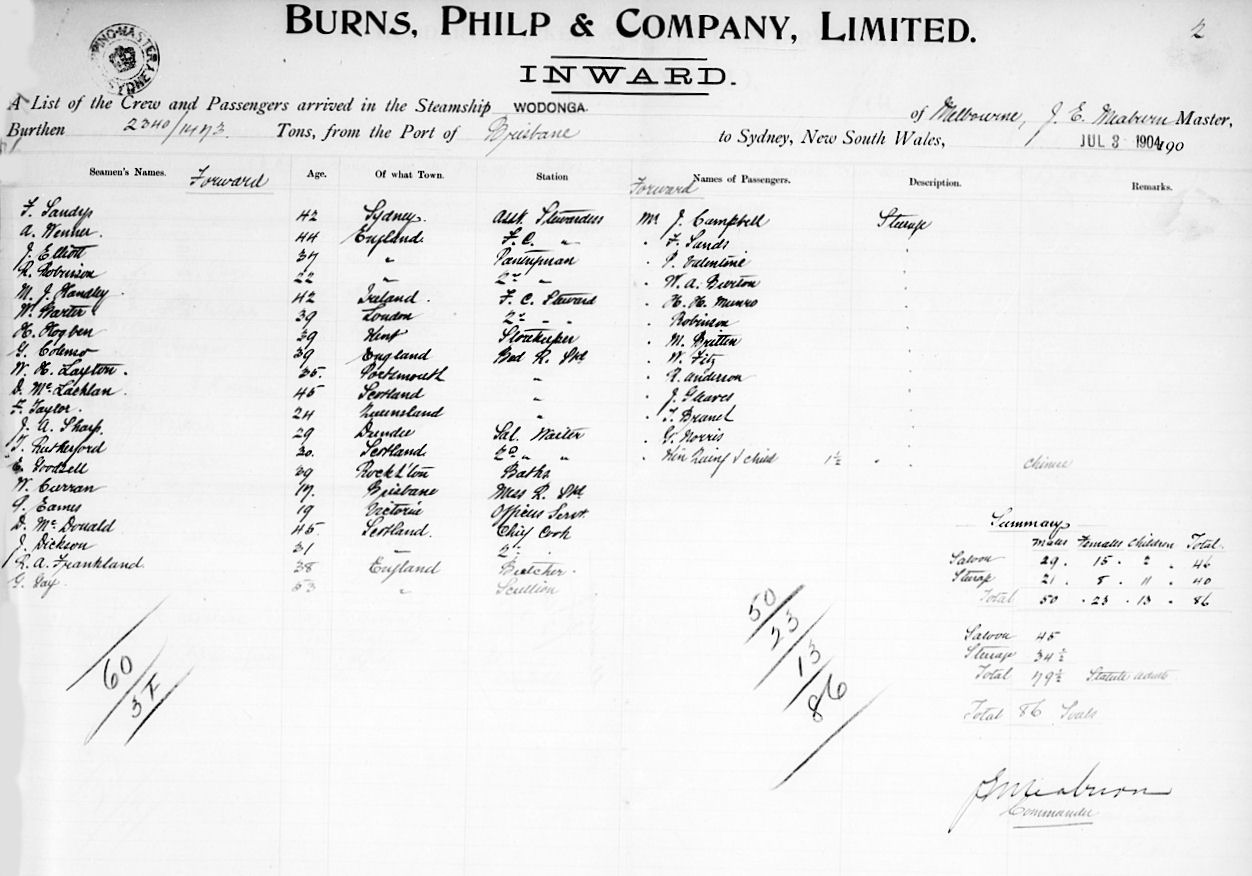 BURNS, PHILP & COMPANY, LIMITED. 2
INWARD.
A List of the Crew and Passengers arrived in the Steamship WODONGA. of Melbourne, J. E. Meaburn Master,
Burthen 2340/1473 Tons, from the Port of Brisbane to Sydney, New South Wales, JUL 3 1904 190
Seamen's Names. Forward Age. Of what Town. Station Forward Names of Passengers. Description. Remarks.
F. Sandys 42 Sydney. Asst. Stewardess Mr J. Campbell Steerage
A. Wenner. 44 England. F.C. " " F. Sands
J. Elliott 37 " Pantryman " Valentine
R. Robinson 22 " 2nd " " W. A. Burton
M. J. Handley 42 Ireland. F. C. Steward " H. H. Munro
W. Warter 39 London 2nd " " " Robinson
H. Hogben 39 Kent Storekeeper " M. Britten
G. 39 England Bed R. Std " W. Fitz
W. H. Layton. 35 Portsmouth " " R. Anderson
D. McLachlan. 45 Scotland " " J. Gleaves
F. Taylor. 24 Queensland "
J. A. Sharp 29 Dundee Sal. Waiter " G. Norris
T. Rutherford 30. Scotland 2nd " " & child 1½
E. 29 Rockh'ton Baths
W. Curran 17. Brisbane Mess R. Std
Eames 19 Victoria Officers Servt.
D. McDonald 45 Scotland. Chief Cook
J. Dickson 31 " 2nd "
R. A. Frankland. 38 England Butcher.
G. Gay. 53 " Scullion
Summary
Males Females Children Total
Saloon 29 . 15 . 2 . 46
Steerage 21 . 8 . 11 . 40
Total 50 . 23 . 13 . 86
Saloon 45
Steerage 34½
Total 79½ Statute Adults
Total 86 Souls
60
50
23
13
86
J E Meaburn
Commander